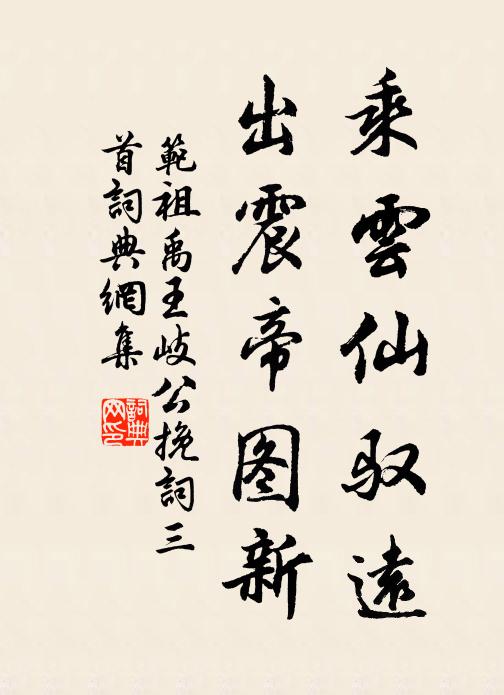 乘雲仙驭遠
出震帝图新
範祖禹王岐公挽詞三
首詞典網集
詞典網印